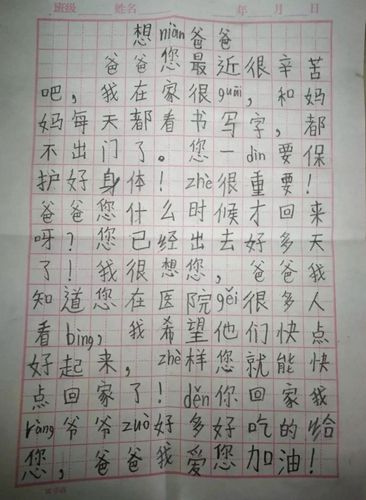 班级 姓名 年 月 日
想niàn爸爸
爸爸您最近很辛苦
吧，我在家很guāi，和妈
妈每天都看书写字，都
不出门了。您一dìn要保
护好身体！zhè很重要！
爸爸您什么时候才回来
呀？您已经出去好多天
了！我很想您，爸爸我
知道您在医院gěi很多人
看bìng，我希望他们快点
好起来，zhè样您就能快
点回家了！děn你回家我
ràng爷爷zuò好多好吃的给
您，爸爸我爱您加油！